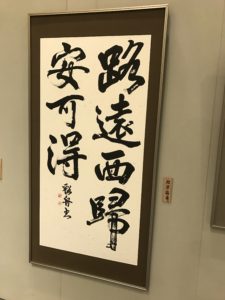 路遠西歸
安可得